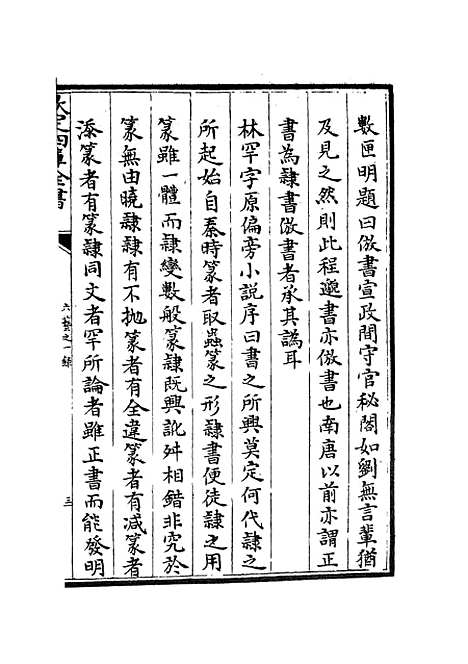 數匣明題曰倣書宣政間守官秘閣如劉無言輩猶
及見之然則此程邈書亦倣書也南唐以前亦謂正
書為隸書倣書者承其譌耳
林罕字原偏旁小說序曰書之所興莫定何代隸之
所起始自秦時篆者取蟲篆之形隸書便徒隸之用
篆雖一體而隸變數般篆隸既興訛舛相錯非究於
篆無由曉隸隸有不抛篆者有全違篆者有減篆者
添篆者有篆隸同文者罕所論者雖正書而能發明
欽定四庫全書
六藝之一錄
三